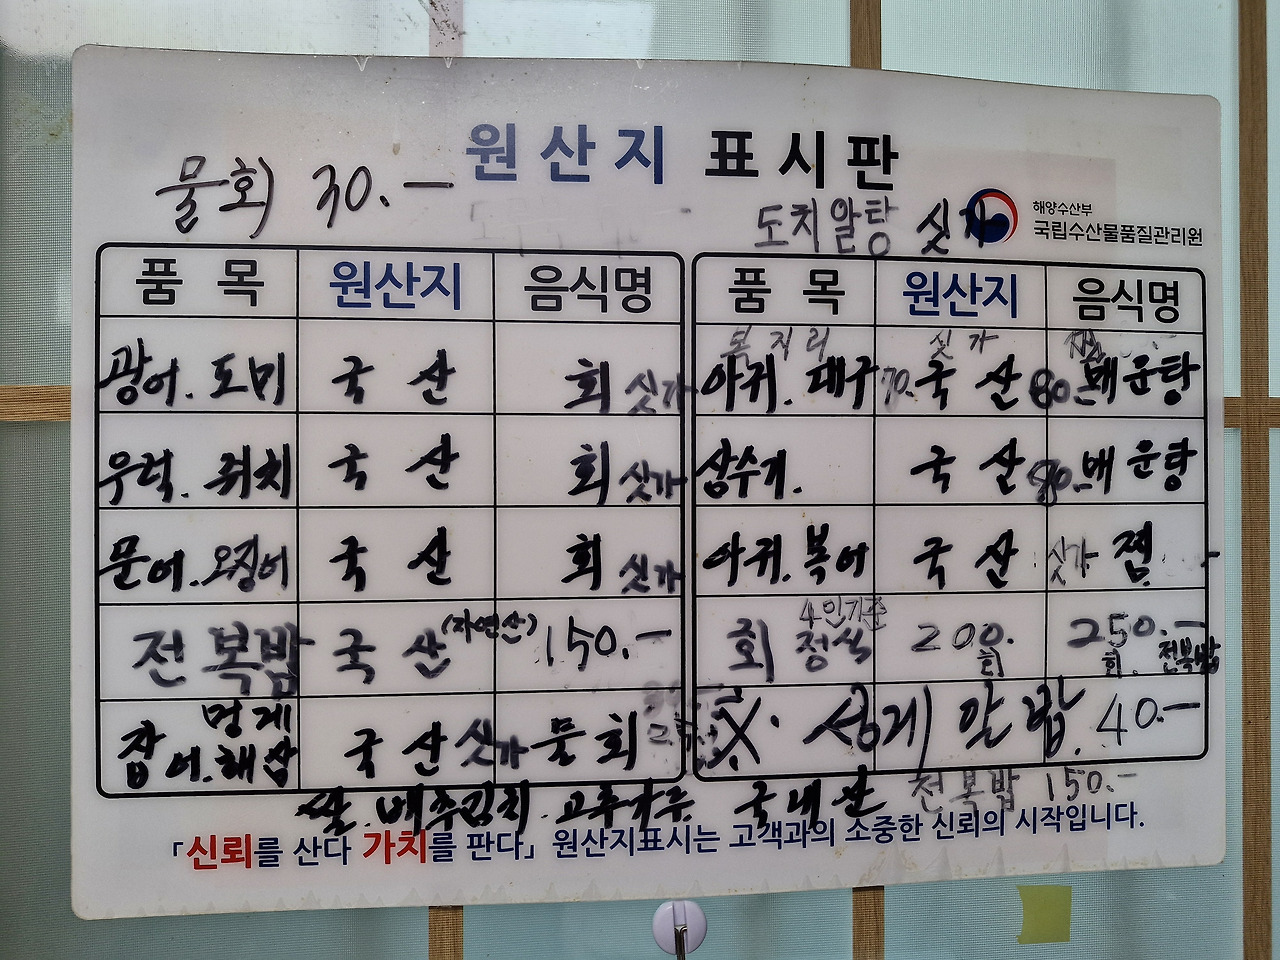 원산지 표시판
물회 30.-
도치알탕 싯가
해양수산부
국립수산물품질관리원
품목 원산지 음식명
광어. 도미 국산 회 싯가
우럭. 쥐치 국산 회 싯가
문어. 오징어 국산 회 싯가
전복밥 국산 (자연산) 150.-
멍게
잡어.해삼 국산 싯가 물회
품목 원산지 음식명
복지리 싯가
아귀. 대구 70. 국산 80.- 매운탕
삼수기. 국산 80.- 매운탕
아귀. 복어 국산 싯가 찜
4인기준
회정식 200. 250.-
회 회. 전복밥
※. 성게알밥. 40.-
쌀. 배추김치. 고추가루. 국내산 전복밥 150.-
「신뢰를 산다 가치를 판다」 원산지표시는 고객과의 소중한 신뢰의 시작입니다.